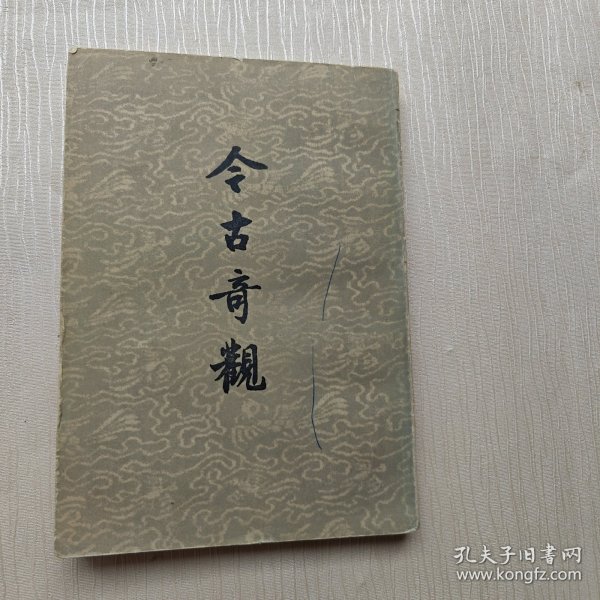 今古奇觀
孔夫子旧書网
www.kongfz.com